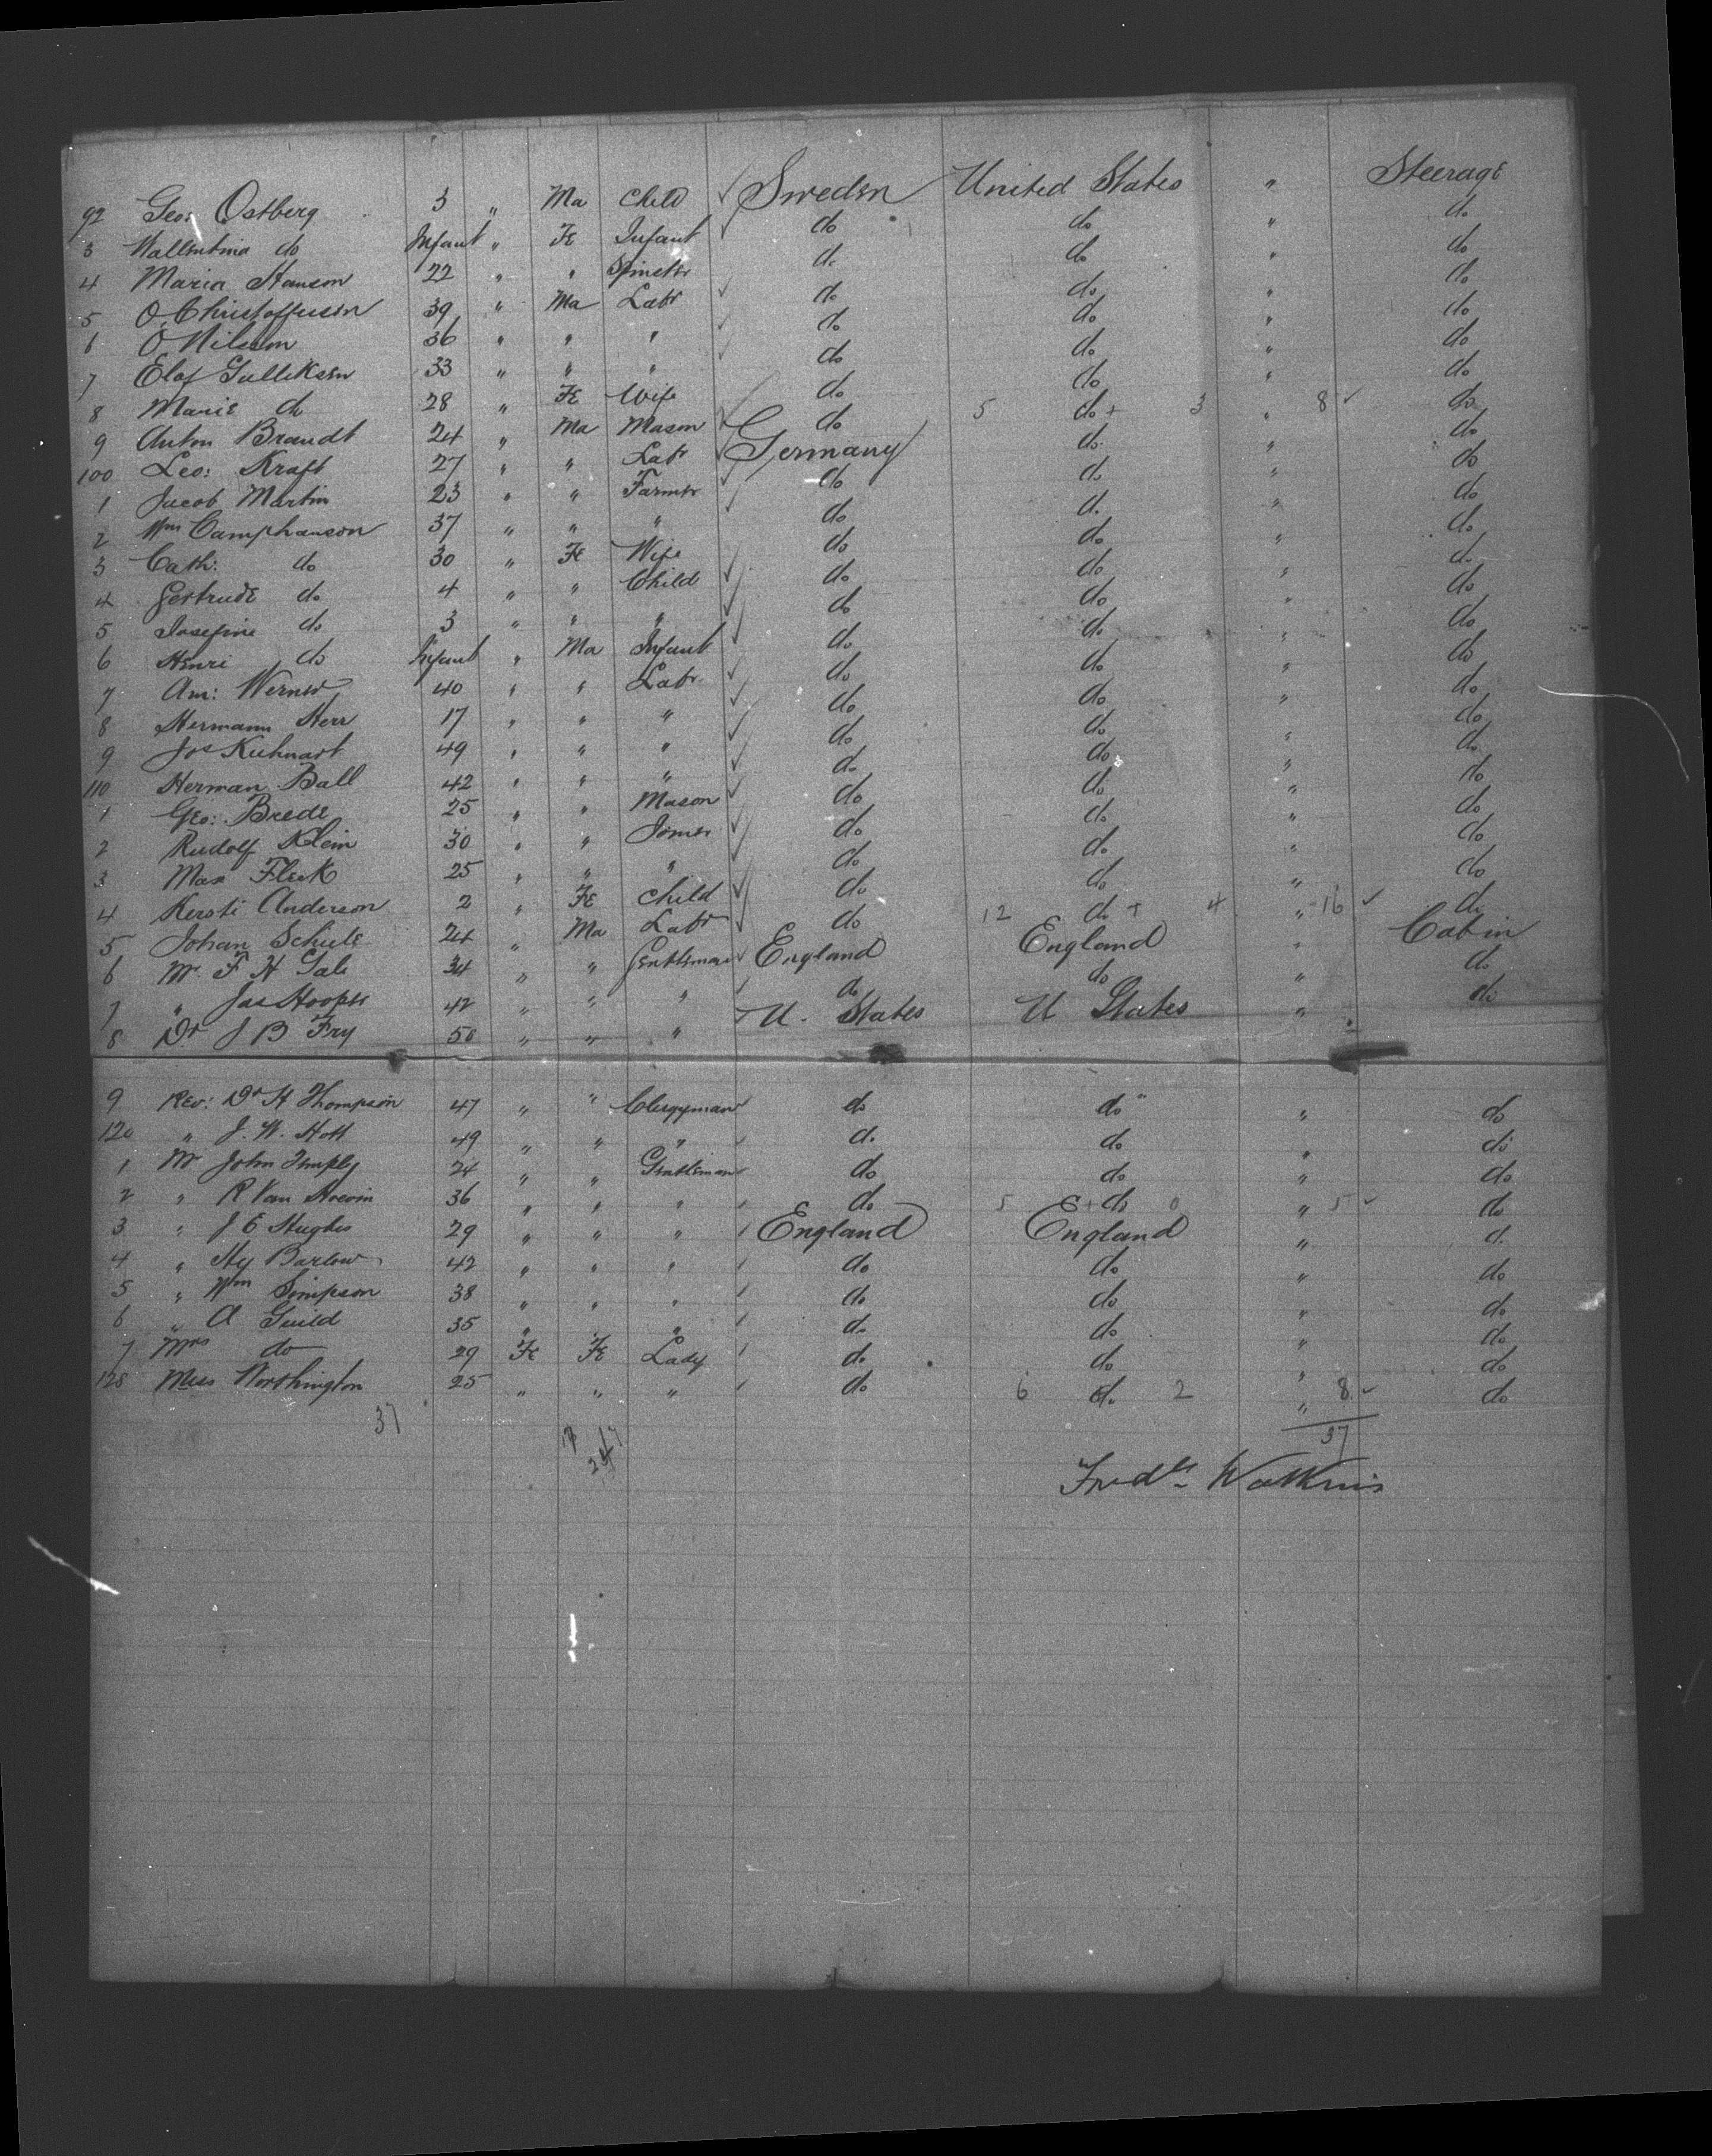 92 Geo: Ostberg 3 " Ma Child Sweden United States " Steerage
3 Wallentina do Infant " Fe Infant do do " do
4 Maria Hanson 22 " " Spinster do do " do
5 O. Christofferson 39 " Ma Labr do do " do
6 O Nilsson 36 " " " do do " do
7 Elof Gulliksen 33 " " " do do " do
8 Marie do 28 " Fe Wife do do " do
9 Anton Brandt 24 " Ma Mason do 5 do + 3 " 8 ✓ do
100 Leo: Kraft 27 " " Labr Germany do " do
1 Jacob Martin 23 " " Farmer do do " do
2 Wm Camphauson 37 " " " do do " do
3 Cath: do 30 " Fe Wife do do " do
4 Gertrude do 4 " " Child do do " do
5 Josefine do 3 " " " do do " do
6 Henri do Infant " Ma Infant do do " do
7 Am: Werner 40 " " Labr do do " do
8 Hermann Herr 17 " " " do do " do
9 Jos Kuhnart 49 " " " do do " do
110 Herman Ball 42 " " " do do " do
1 Geo: Brede 25 " " Mason do do " do
2 Rudolf Klein 30 " " Joiner do do " do
3 Max Fleck 25 " " " do do " do
4 Kersti Anderson 2 " Fe Child do do " do
5 Johan Schule 24 " Ma Labr do 12 do + 4 " 16 ✓ do
6 Mr. F H Gale 34 " " Gentleman England England " Cabin
7 " Jas Hooper 42 " " " do do " do
8 Dr J B Fry 50 " " " U. States U States " do
9 Rev: Dr H Thompson 47 " " Clergyman do do " do
120 " J. W. Hott 49 " " " do do " do
1 Mr John 24 " " Gentleman do do " do
2 " R Van 36 " " " do 5 do 0 " 5 ✓ do
3 " J E Hughes 29 " " " England England " do
4 " Hy Barlow 42 " " " do do " do
5 " Wm Simpson 38 " " " do do " do
6 " A Guild 35 " " " do do " do
7 Mrs do 29 Fe Fe Lady do do " do
128 Miss Worthington 25 " " " do 6 do 2 " 8 ✓ do
37 37
Fredk Watkins